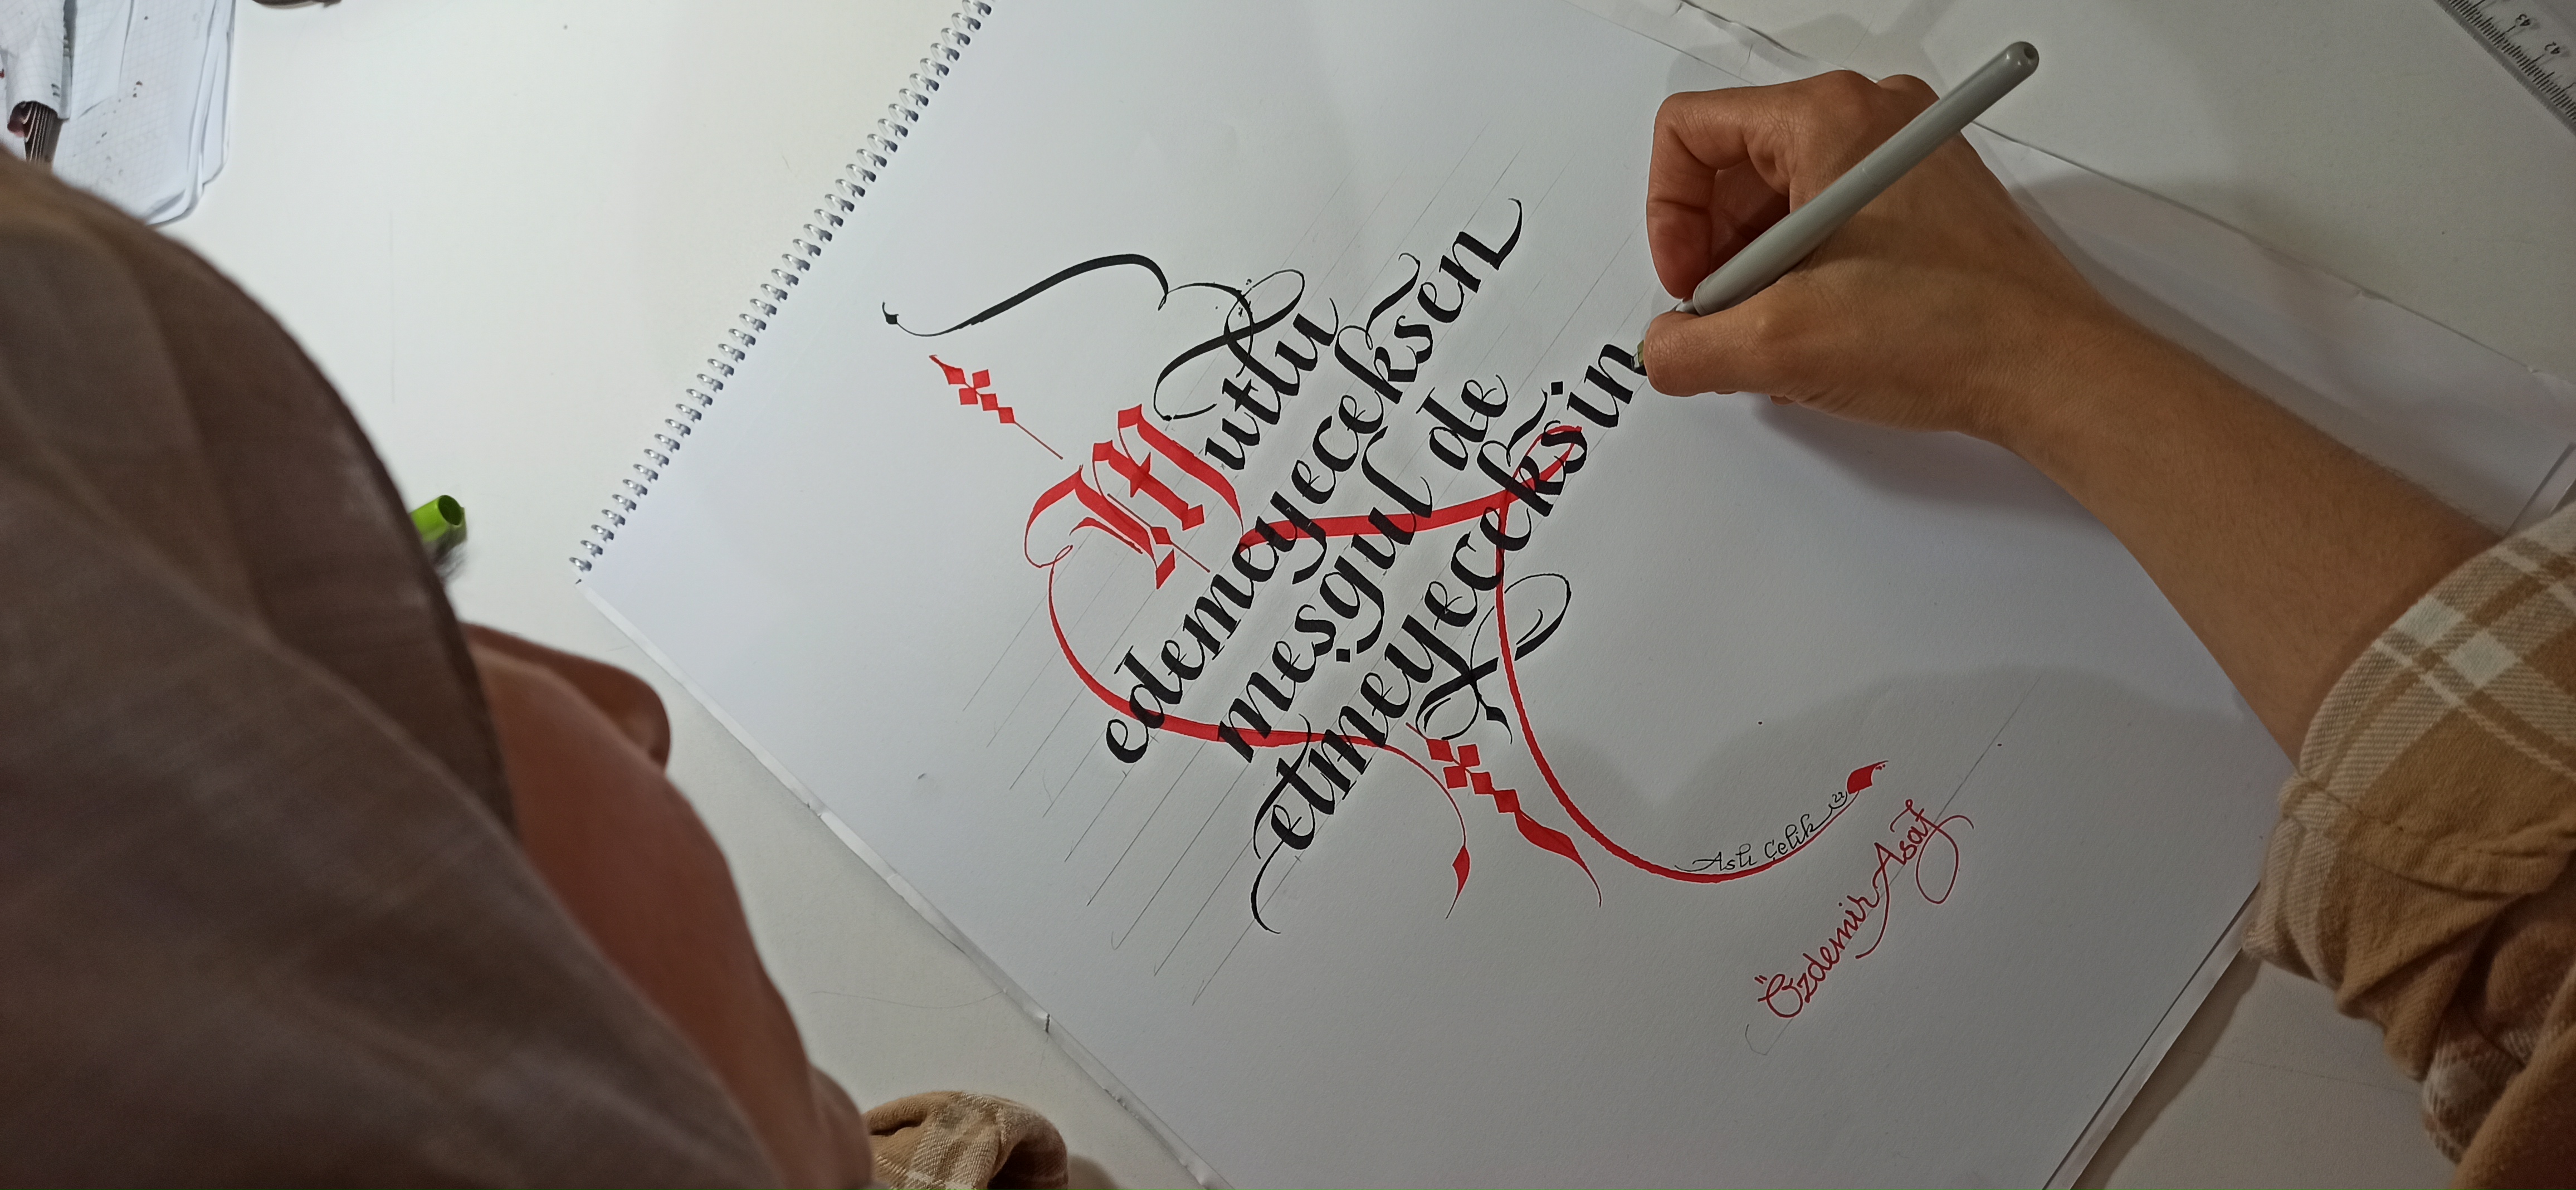 Mutlu
edemeyeceksen
meşgul de
etmeyeceksin
Aslı Çelik 22
Özdemir Asaf
43
42